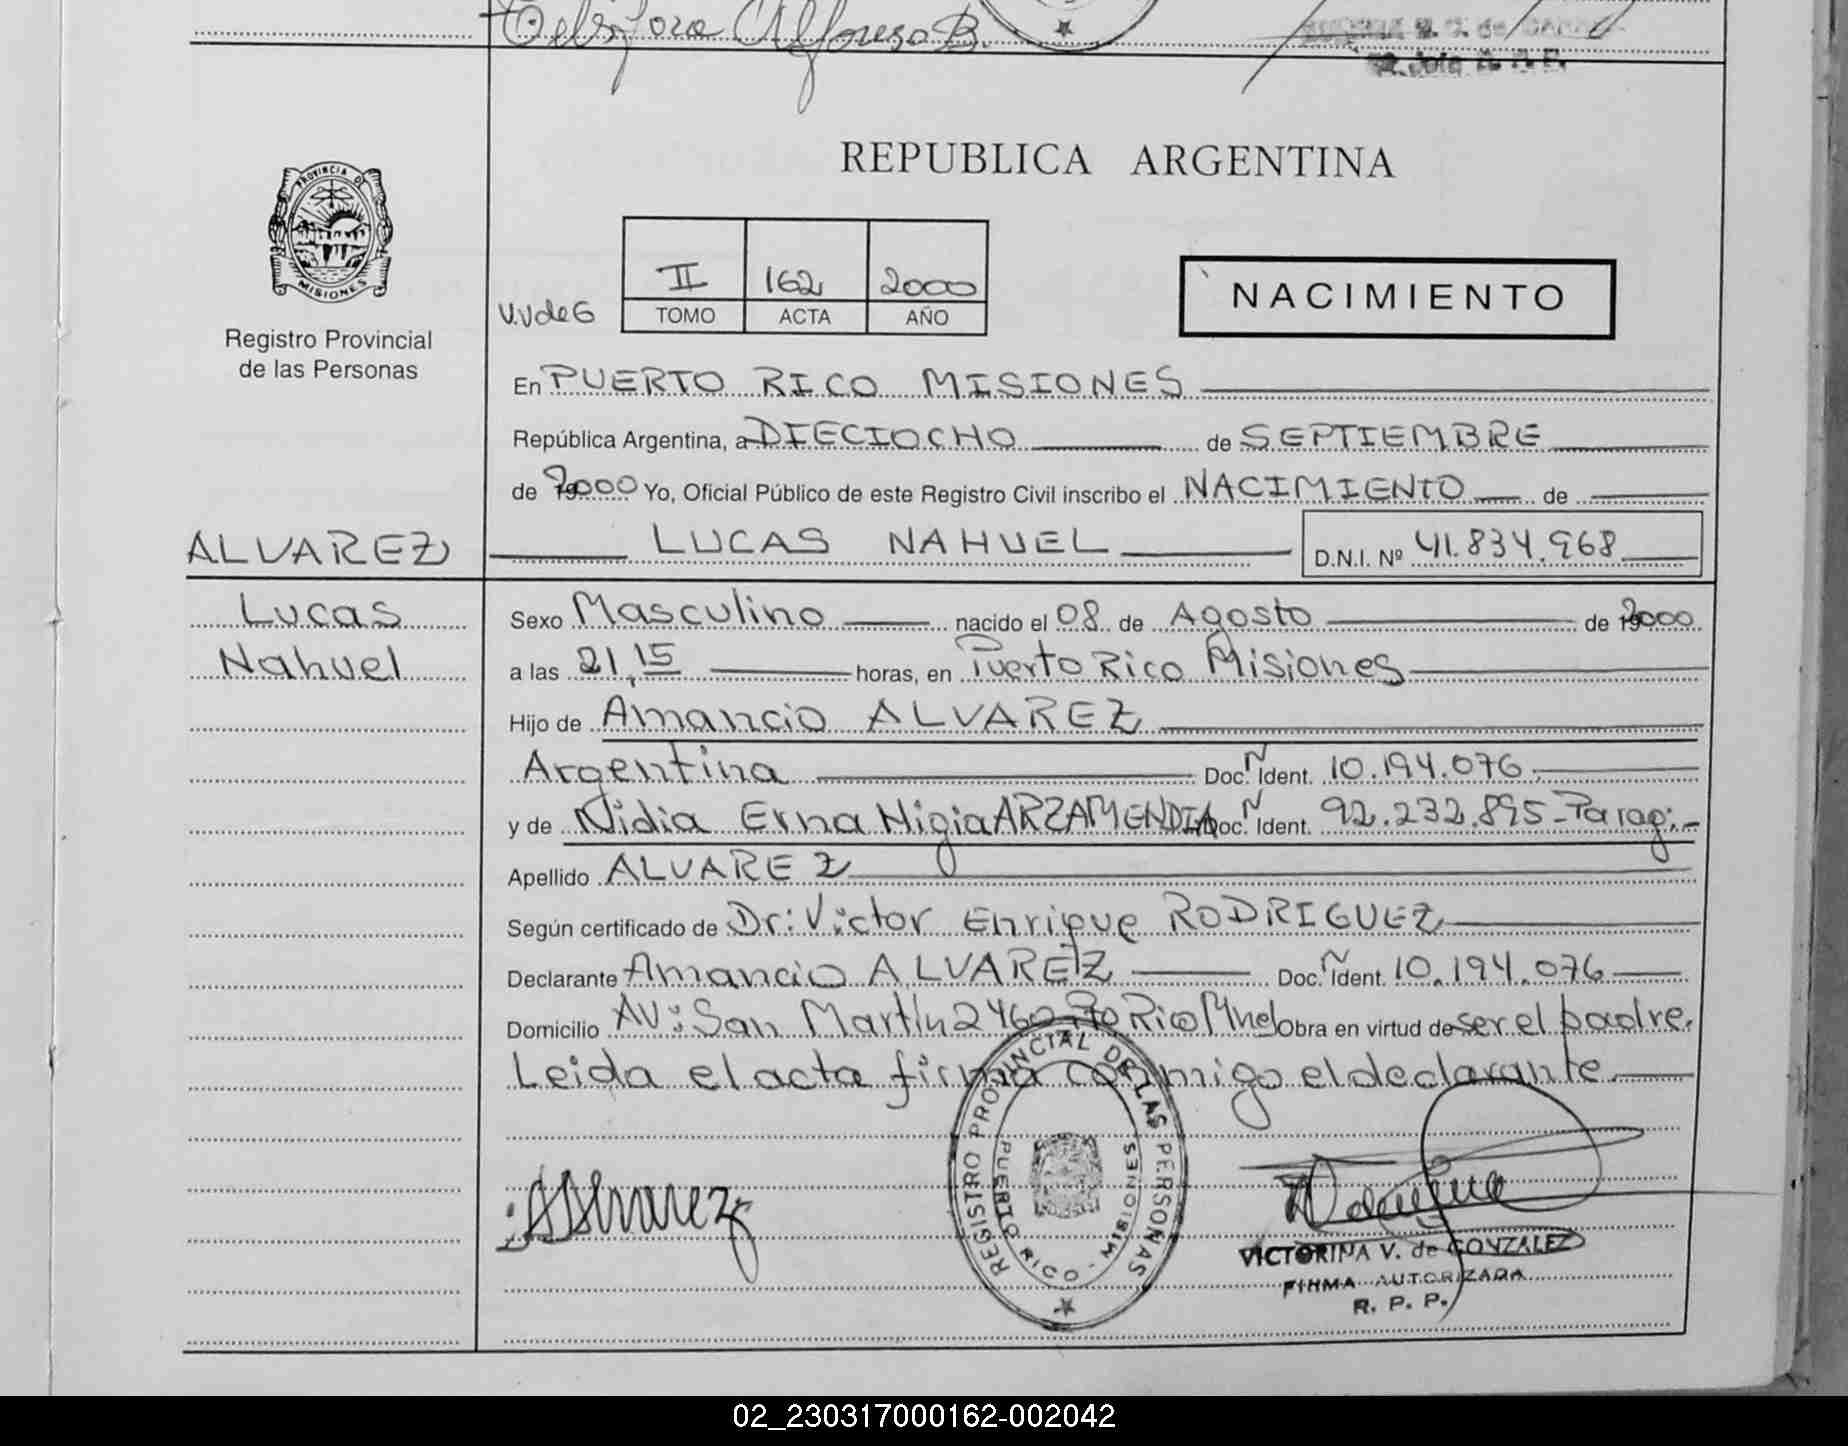 Telésforo Alfonso B.
REPUBLICA ARGENTINA
PROVINCIA DE
MISIONES
Registro Provincial
de las Personas
V.V de G
II 162 2000
TOMO ACTA AÑO
NACIMIENTO
En PUERTO RICO MISIONES
República Argentina, a DIECIOCHO de SEPTIEMBRE
de 2000 Yo, Oficial Público de este Registro Civil inscribo el NACIMIENTO de
ALVAREZ LUCAS NAHUEL D.N.I. Nº 41.834.968
Lucas Sexo Masculino nacido el 08 de Agosto de 2000
Nahuel a las 21,15 horas, en Puerto Rico Misiones
Hijo de Amancio ALVAREZ
Argentina Doc. Ñ Ident. 10.194.076
y de Nidia Erna Higia ARZAMENDIA Doc. Ñ Ident. 92.232.895 - Parag.-
Apellido ALVAREZ
Según certificado de Dr: Victor Enrique RODRIGUEZ
Declarante Amancio ALVAREZ Doc. Ñ Ident. 10.194.076
Domicilio AV: San Martín 2460 Pto Rico Mnes Obra en virtud de ser el padre.
Leida el acta firma conmigo el declarante
Alvarez
REGISTRO PROVINCIAL DE LAS PERSONAS
PUERTO RICO - MISIONES
VICTORINA V. de GONZALEZ
FIRMA AUTORIZADA
R. P. P.
02_230317000162-002042